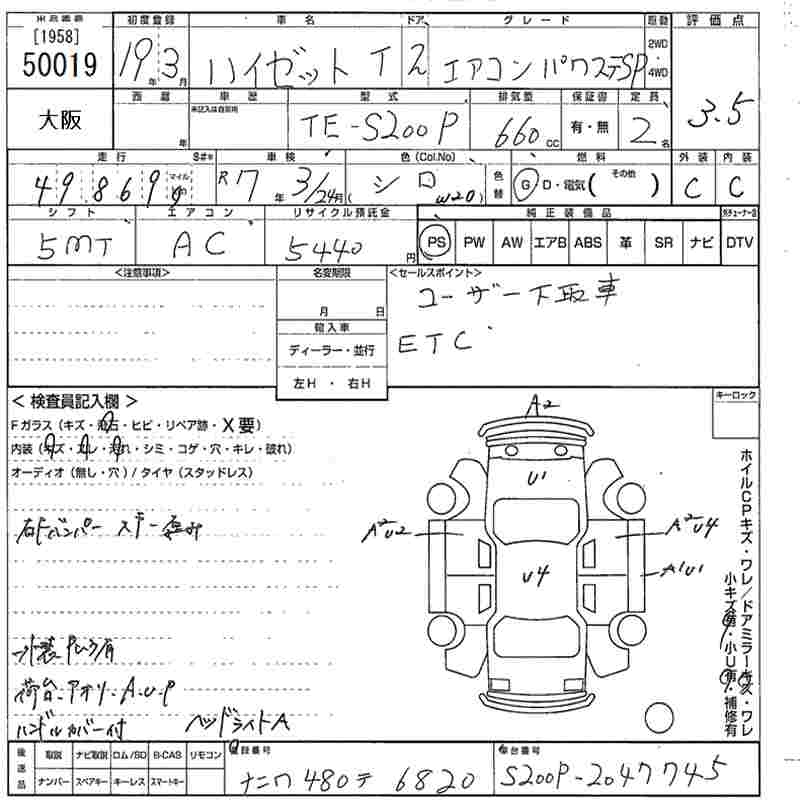 [1958]
50019
大阪
初度登録
19年 3月
車名
ハイゼット T
ドア
2
グレード
エアコン パワステSP
駆動
2WD
・
4WD
評価点
3.5
西暦
年
車歴
未記入は自家用
型式
TE-S200P
排気量
660cc
保証書
有・無
定員
2名
走行
49869
マイル
km
S#*
車検
R7年 3/24月
色 (Col.No)
シロ
W20)
色替
燃料
G D・電気( その他 )
外装
C
内装
C
シフト
5MT
エアコン
AC
リサイクル預託金
5440円
純正装備品
PS PW AW エアB ABS 革 SR ナビ
DTV
<注意事項>
名変期限
月 日
輸入車
ディーラー・並行
左H ・ 右H
<セールスポイント>
ユーザー下取車
ETC
キーロック
< 検査員記入欄 >
Fガラス (キズ・飛石・ヒビ・リペア跡・X要)
内装 (キズ・スレ・汚れ・シミ・コゲ・穴・キレ・破れ)
オーディオ (無し・穴) / タイヤ (スタッドレス)
荷台アオリ A・U・P
ハンドルカバー付
ヘッドライトA
A2
U1
A2U2
A2U4
A1U1
U4
ホイルCPキズ・ワレ/ドアミラーキズ・ワレ
小キズ有・小U有・補修有
後送品
取説 ナビ取説 ロム/SD B-CAS リモコン
ナンバー スペアキー キーレス スマートキー
登録番号
ナニワ 480 テ 6820
車台番号
S200P-2047745